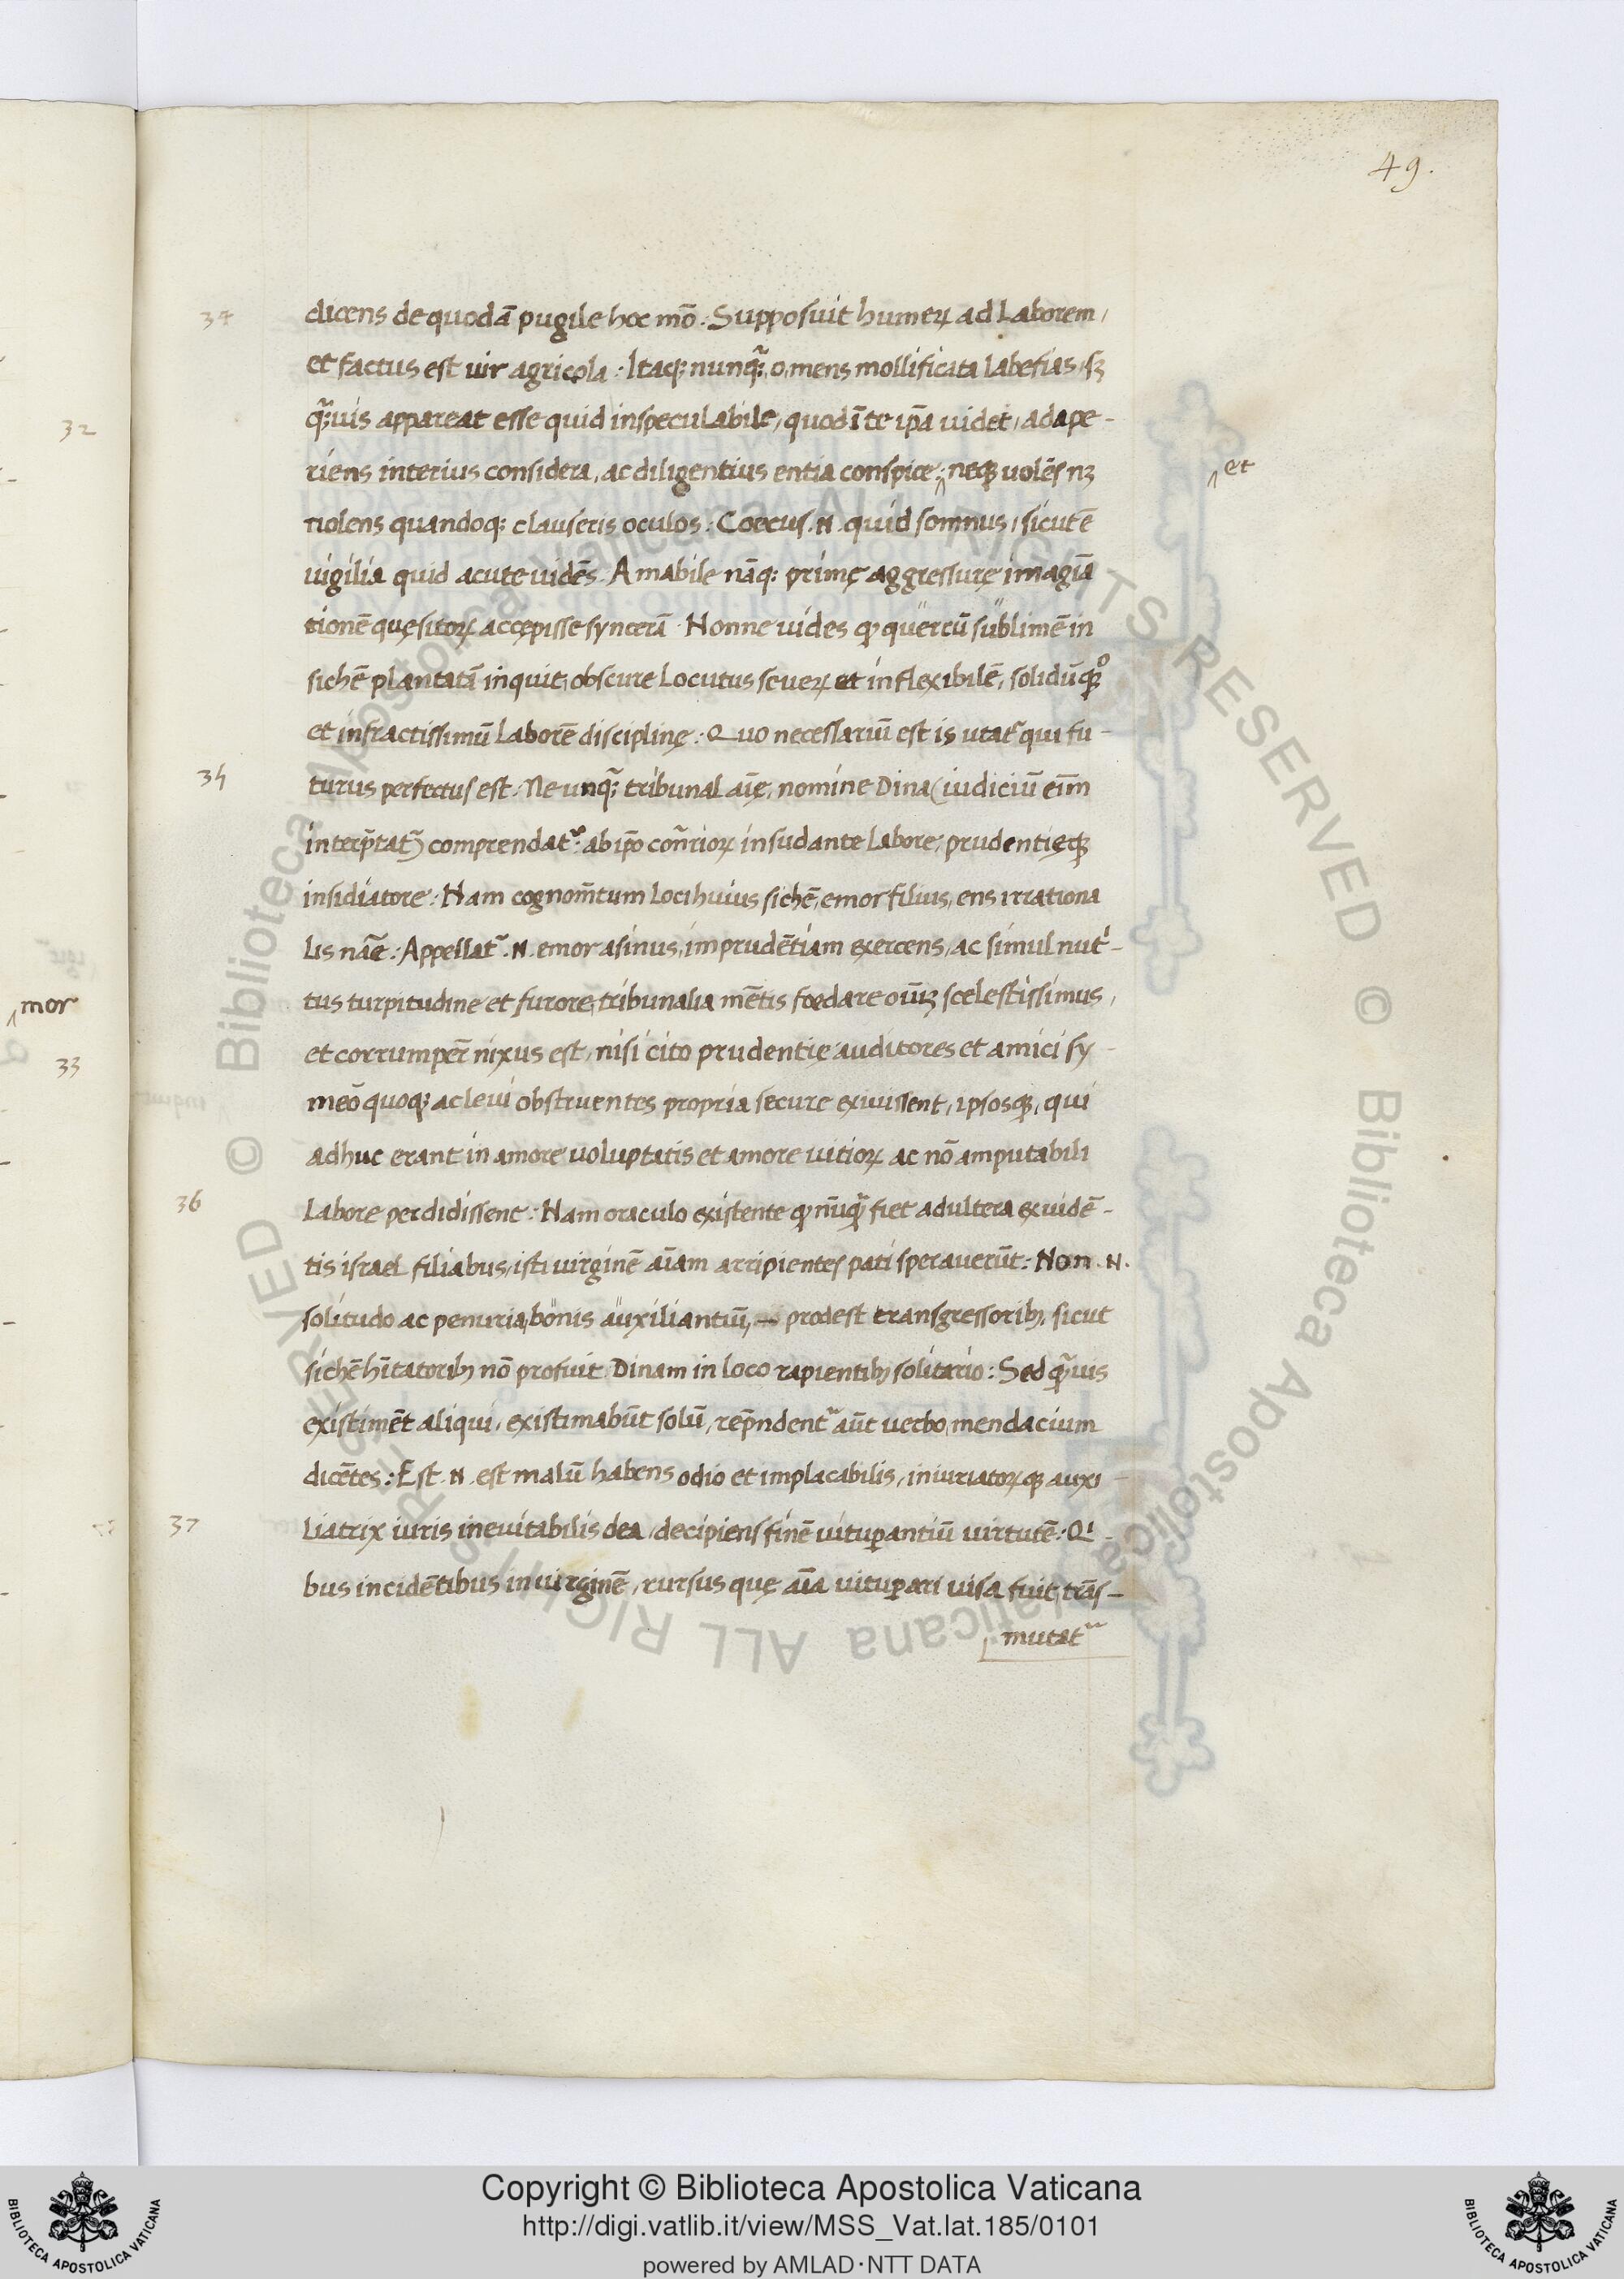 49.
34
dicens de quodã pugile hoc mõ : Supposuit humeꝝ ad Laborem,
et factus est uir agricola : Itaq; nunq̃; o mens mollificata labefias, sꝫ
q̃;uis appareat esse quid inspeculabile, quod ĩ te ip̃a uidet, adape-
riens interius considera, ac diligentius entia conspice : neqꝫ uolẽs nꝫ
et
nolens quandoq; clauseris oculos : Coecus .N. quid somnus, sicut ẽ
uigilia quid acute uidẽs. Amabile nãq; primę aggressurę imaginã
tionẽ quęsitoꝝ accępisse syncerã. Nonne uides ꝙ quercũ sublimẽ in
sichẽ plantatã inquit, obscure Locutus seueꝝ et inflexibilẽ, solidũqꝫ
et infractissimũ Laborẽ disciplinę : Quo necessariũ est is utat᷑ qui fu-
35
turus perfectus est. Ne unq̃; tribunal aĩę, nomine Dina (iudiciũ eĩm
interp̃tat᷑) comprendat᷑ ab ip̃o cõrarioꝝ insudante Labore, prudentięqꝫ
insidiatore : Nam cognom̃tum Loci huius sichẽ, emor filius, ens irrationa
lis nãe : Appellat᷑ .N. emor asinus, imprudẽtiam exercens, ac simul nutri-
tus turpitudine et furore, tribunalia mẽtis foedare oĩuꝫ scelestissimus,
et corrumper̃ nixus est, nisi cito prudentię auditores et amici sy-
meõ quoq; ac leui obstruentes propria secure exiuissent, ipsosqꝫ, qui
adhuc erant in amore uoluptatis et amore uitioꝝ ac nõ amputabili
36
Labore perdidissent : Nam oraculo existente ꝙ nũq̃ fiet adultera ex uidẽ-
tis israel filiabus, isti uirginẽ aĩam arripientes pati sperauerũt : Non .N.
solitudo ac penuria, bonis auxiliantiũ, prodest transgressoribꝫ, sicut
sichẽ hĩtatoribꝫ nõ profuit Dinam in loco rapientibꝫ solitario : Sed q̃uis
existimẽt aliqui, existimabũt solũ, rep̃ndent᷑ aũt uerbo, mendacium
dicẽtes : Est .N. est malũ habens odio et implacabilis, iniuriatoꝝqꝫ auxi-
37
Liatrix iuris ineuitabilis dea, decipiens finẽ uituꝑantiũ uirtutẽ : Qi-
bus incidẽtibus in uirginẽ, rursus quę aĩa uituꝑari uisa fuit, trãs-
mutat᷑
32
mor
33
© Biblioteca Apostolica Vaticana ALL RIGHTS RESERVED
© Biblioteca Apostolica Vaticana ALL RIGHTS RESERVED
BIBLIOTECA APOSTOLICA VATICANA
Copyright © Biblioteca Apostolica Vaticana
http://digi.vatlib.it/view/MSS_Vat.lat.185/0101
powered by AMLAD·NTT DATA
BIBLIOTECA APOSTOLICA VATICANA